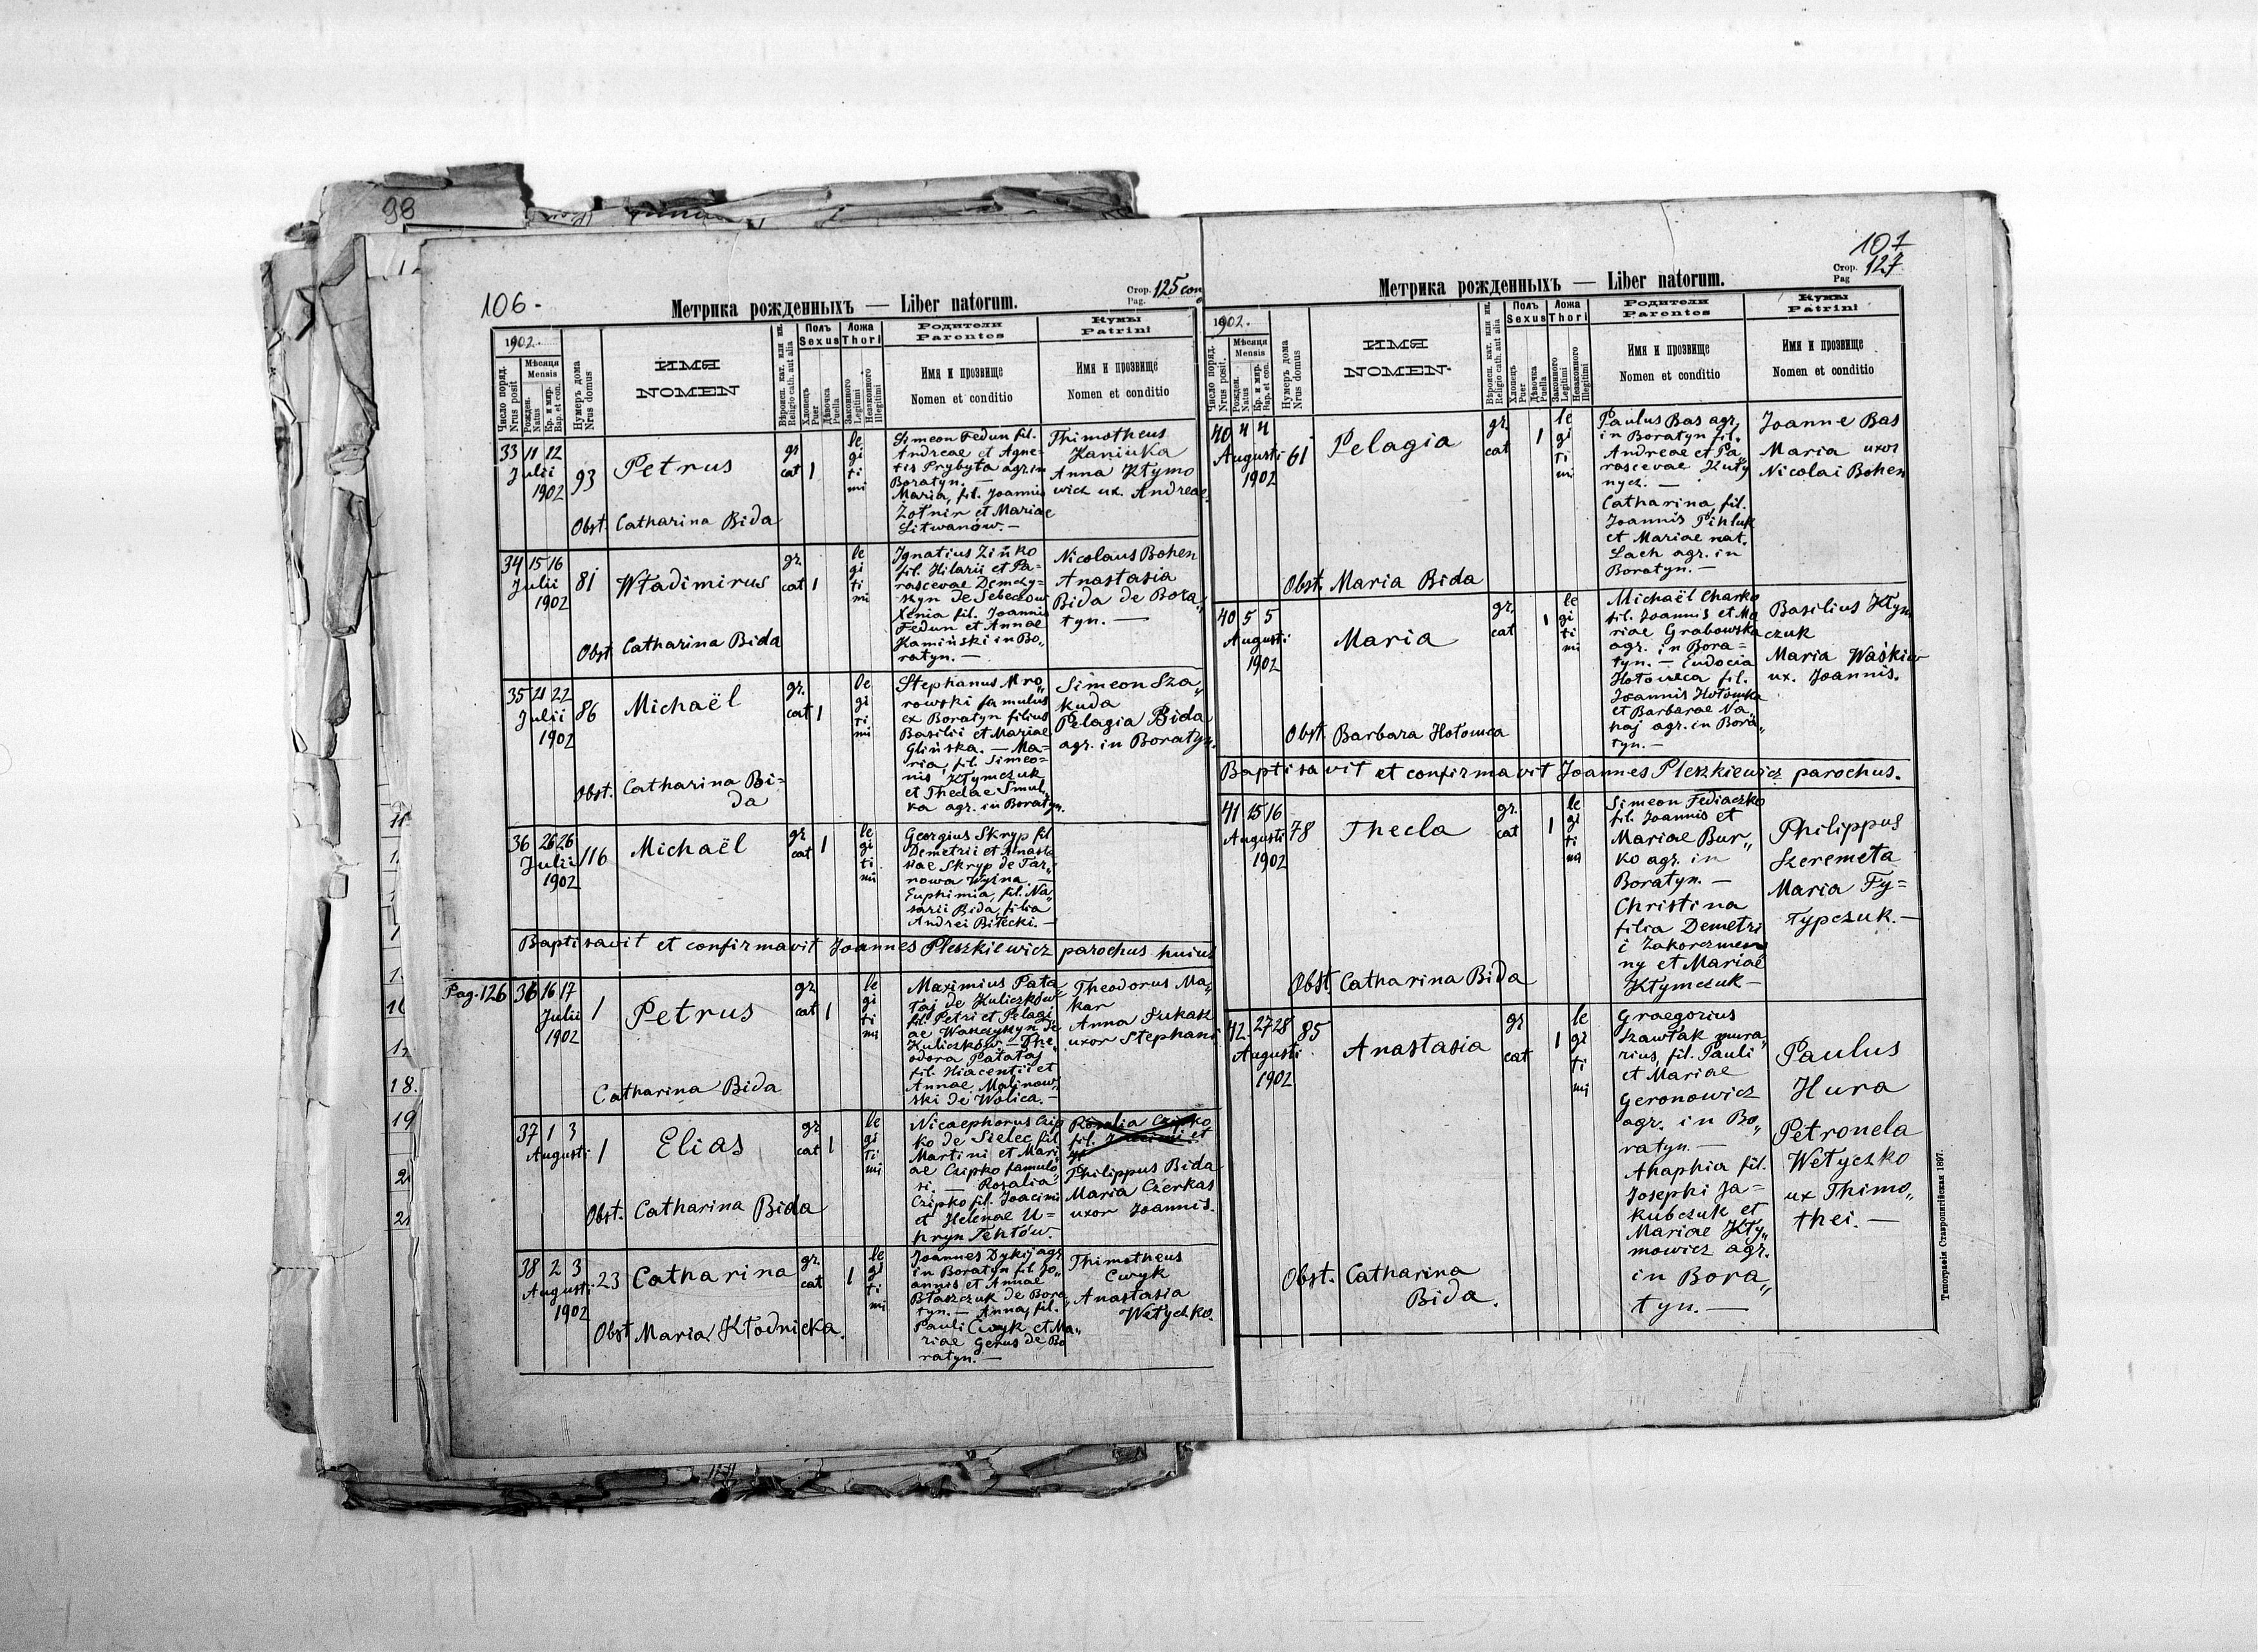 98
106.
Метрика рожденныхъ — Liber natorum.
Стор. 125 con
Pag.
1902.
Число поряд.
Nrus posit
Мѣсяца
Mensis
Рожден.
Natus
Кр. и мир.
Bap. et con.
Нумеръ дома
Nrus domus
ИМЯ
NOMEN
Вѣроисп. кат. или ин.
Religio cath. aut alia
Полъ
Sexus
Хлопець
Puer
Дѣвочка
Puella
Ложа
Thori
Законного
Legitimi
Незаконного
Illegitimi
Родители
Parentes
Имя и прозвище
Nomen et conditio
Кумы
Patrini
Имя и прозвище
Nomen et conditio
33 11 12
Julii
1902
93
Petrus
Obst. Catharina Bida
gr
cat
1
le
gi
ti
mi
Simeon Fedun fil.
Andreae et Agne-
tis Prybyła agr. in
Boratyn. —
Maria, fil. Joannis
Żołnir et Mariae
Litwanów. —
Thimotheus
Kaniuka
Anna Kłymo
wicz ux. Andreae.
34 15 16
Julii
1902
81
Władimirus
Obst Catharina Bida
gr.
cat
1
le
gi
ti
mi
Ignatius Zińko
fil. Hilarii et Pa-
rascevae Demczy=
szyn de Sebeczów
Xenia fil. Joannis
Fedun et Annae
Kamiński in Bo„
ratyn. —
Nicolaus Bohen
Anastasia
Bida de Bora„
tyn. —
35 21 22
Julii
1902
86
Michaël
Obst. Catharina Bi=
da
gr.
cat
1
le
gi
ti
mi
Stephanus Mro„
rowski famulus
ex Boratyn filius
Basilii et Mariae
Glińska. — Ma=
ria, fil. Simeo=
nis Kłymczuk
et Theclae Smul„
ka agr. in Boratyn.
Simeon Sza„
kuda
Pelagia Bida
agr. in Boratyn.
36 26 26
Julii
1902
116
Michaël
gr
cat
1
le
gi
ti
mi
Georgius Skryp fil
Demetrii et Anasta
siae Skryp de Tar„
nowa Wyżna —
Euphimia, fil. Na„
sarii Bida, filia
Andrei Biłecki. —
Baptisavit et confirmavit Joannes Pleszkiewicz parochus huius
Pag. 126
36 16 17
Julii
1902
1
Petrus
Catharina Bida
gr
cat
1
le
gi
ti
mi
Maximius Pata„
taj de Kuliczków
fil. Petri et Pelagi„
ae Wawczyszyn de
Kuliczków — The„
odora Patataj
fil. Hiacentii et
Annae Malinow„
ski de Wolica. —
Theodorus Ma„
kar
Anna Łukasz
uxor Stephani
37 1 3
Augusti
1
Elias
Obst. Catharina Bida
gr
cat
1
le
gi
ti
mi
Nicaephorus Czip
ko de Sielec fil
Martini et Mari„
ae Czipko famulo„
si. — Rosalia
Czipko fil. Joacimi
et Helenae U=
hryn Tehtów.
Rosalia Czipko
fil. Joacimi et
Philippus Bida
Maria Czerkas
uxor Joannis.
38 2 3
Augusti
1902
23
Catharina
Obst Maria Kłodnicka.
gr.
cat
1
le
gi
ti
mi
Joannes Dykij agr
in Boratyn fil Jo„
annis et Annae
Błaszczuk de Bora„
tyn. — Anna, fil.
Pauli Cwyk et Ma„
riae Gerus de Bo
ratyn. —
Thimotheus
Cwyk
Anastasia
Wetyczko.
107
Метрика рожденныхъ — Liber natorum.
Стор. 127
Pag
1902.
Число поряд.
Nrus posit.
Мѣсяца
Mensis
Рожден.
Natus
Кр. и мир.
Bap. et con.
Нумеръ дома
Nrus domus
ИМЯ
NOMEN
Вѣроисп. кат. или ин.
Religio cath. aut alia
Полъ
Sexus
Хлопець
Puer
Дѣвочка
Puella
Ложа
Thori
Законного
Legitimi
Незаконного
Illegitimi
Родители
Parentes
Имя и прозвище
Nomen et conditio
Кумы
Patrini
Имя и прозвище
Nomen et conditio
40 4 4
Augusti
1902
61
Pelagia
Obst. Maria Bida
gr.
cat
1
le
gi
ti
mi
Paulus Bas agr.
in Boratyn fil.
Andreae et Pa„
rascevae Kuty
nycz. —
Catharina, fil.
Joannis Pihluk
et Mariae nat.
Lach agr. in
Boratyn. —
Joanne Bas
Maria uxor
Nicolai Bohen
40 5 5
Augusti
1902
Maria
Obst. Barbara Hołowca
gr.
cat
1
le
gi
ti
mi
Michaël Charko
fil. Joannis et Ma
riae Grabowska
agr. in Bora=
tyn. — Eudocia
Hołowca fil.
Joannis Hołowka
et Barbarae Na„
haj agr. in Bora„
tyn. —
Basilius Kłym
czuk
Maria Waśkiw
ux. Joannis.
Baptisavit et confirmavit Joannes Pleszkiewicz parochus.
41 15 16
Augusti
1902
78
Thecla
Obst Catharina Bida
gr.
cat
1
le
gi
ti
mi
Simeon Fediaczko
fil. Joannis et
Mariae Bur„
ko agr. in
Boratyn. —
Christina
filia Demetri
i Zakorzmen
ny et Mariae
Kłymczuk —
Philippus
Szeremeta
Maria Ty=
typczuk. —
42. 27 28
Augusti
1902
85
Anastasia
Obst. Catharina
Bida.
gr
cat
1
le
gi
ti
mi
Graegorius
Szawłak mura„
rius, fil. Pauli
et Mariae
Geronowicz
agr. in Bo„
ratyn. —
Ahaphia fil.
Josephi Ja=
kubczuk et
Mariae Kły„
mowicz agr.
in Bora„
tyn. —
Paulus
Hura
Petronela
Wetyczko
ux Thimo„
thei. —
Типографія Ставропигійская 1897.